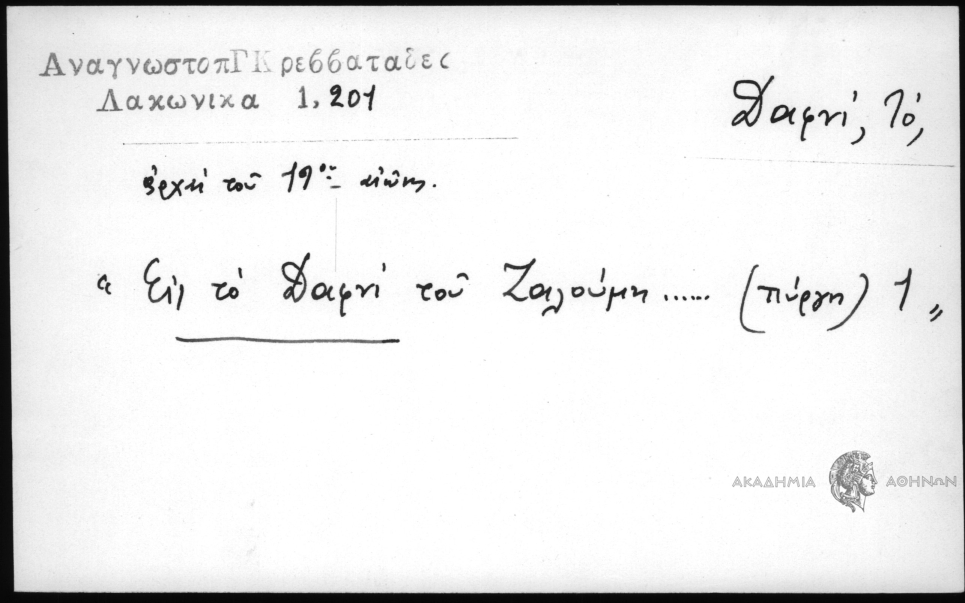 ΑναγνωστοπΓΚρεββαταδες
Λακωνικα 1,201
Δαφνί, Τό,
ἀρχαί τοῦ 19ου αἰῶνος.
“ Εἰς τό Δαφνί τοῦ Ζαλούμη...... (πύργοι) 1 „
ΑΚΑΔΗΜΙΑ ΑΘΗΝΩΝ